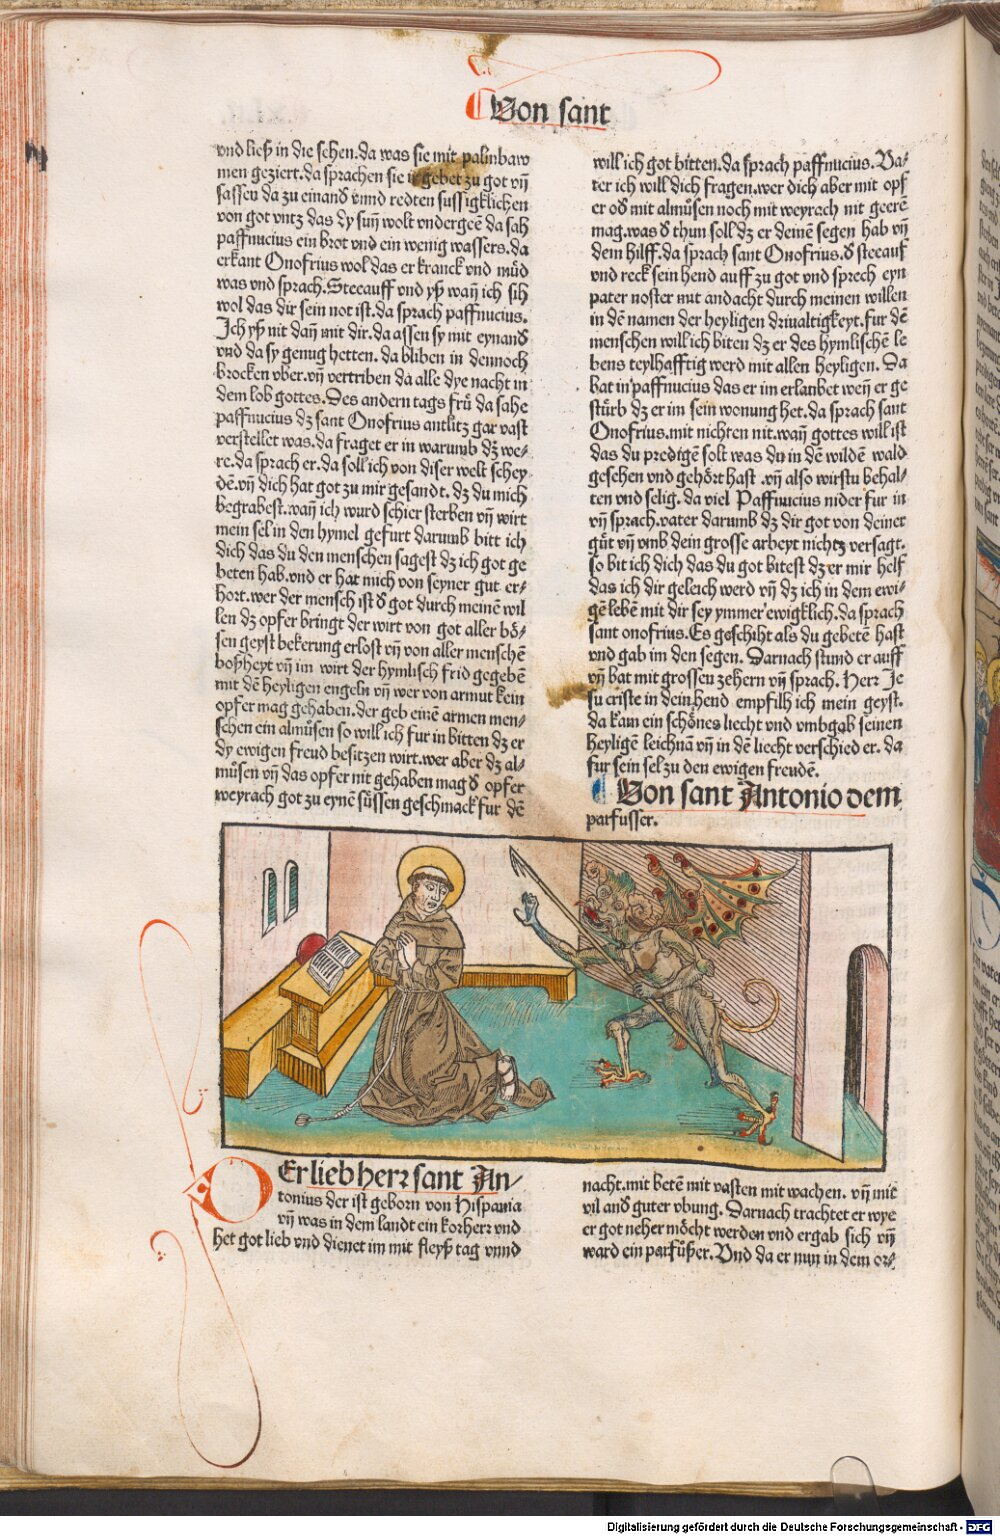 Von sant
vnd ließ in die sehen.da was sie mit palmbaw
men geziert.da sprachen sie gebet zu got vñ
sassen da zu einand̄ vnnd redten sussigklichen
von got vntz das dy suñ wolt vndergeē da sah
paffnucius ein brot vnd ein wenig wassers.da
erkant Onofrius wol das er kranck vnd můd
was vnd sprach.Steeauff vnd yß wañ ich sih
wol das dir sein not ist.da sprach paffnucius.
Ich yß nit dañ mit dir.da assen sy mit eynand̄
vnd da sy genug hetten.da bliben in dennoch
brocken vber.vñ vertriben da alle dye nacht in
dem lob gottes.Des andern tags frů da sahe
paffnucius dz sant Onofrius antlitz gar vast
verstellet was.da fraget er in warumb dz we-
re.da sprach er.da soll ich von diser welt schey
dē.vñ dich hat got zu mir gesandt.dz du mich
begrabest.wañ ich wurd schier sterben vñ wirt
mein sel in den hymel gefurt darumb bitt ich
dich das du den menschen sagest dz ich got ge
beten hab.vnd er hat mich von seyner gut er-
hort.wer der mensch ist d̄ got durch meinē wil
len dz opfer bringt der wirt von got aller bö-
sen geyst bekerung erlost vñ von aller menschē
boßheyt vñ im wirt der hymlisch frid gegebē
mit dē heyligen engeln vñ wer von armut kein
opfer mag gehaben.der geb einē armen men-
schen ein almůsen so will ich fur in bitten dz er
dy ewigen freud besitzen wirt.wer aber dz al-
můsen vñ das opfer nit gehaben mag d̄ opfer
weyrach got zu eynē süssen geschmack fur dē
will ich got bitten.da sprach paffnucius.Va-
ter ich will dich fragen.wer dich aber mit opf
er od̄ mit almůsen noch mit weyrach nit geerē
mag.was d̄ thun soll dz er deinē segen hab vñ
dem hilff.da sprach sant Onofrius.d̄ steeauf
vnd reck sein hend auff zu got vnd sprech eyn
pater noster mit andacht durch meinen willen
in dē namen der heyligen driualtigkeyt.fur dē
menschen will ich biten dz er des hymlischē le
bens teylhafftig werd mit allen heyligen. Da
bat in paffnucius das er im erlaubet weñ er ge
stürb dz er im sein wonung het.da sprach sant
Onofrius.mit nichten nit.wañ gottes will ist
das du predigē solt was du in dē wildē wald
gesehen vnd gehört hast .vñ also wirstu behal-
ten vnd selig. da viel Paffnucius nider fur in
vñ sprach.vater darumb dz dir got von deiner
gůt vñ vmb dein grosse arbeyt nichtz versagt.
so bit ich dich das du got bitest dz er mir helf
das ich dir geleich werd vñ dz ich in dem ewi-
gē lebē mit dir sey ymmer ewigklich.da sprach
sant onofrius.Es geschiht als du gebetē hast
vnd gab im den segen. Darnach stund er auff
vñ bat mit grossen zehern vñ sprach. Herr Je
su criste in dein hend empfilh ich mein geyst.
da kam ein schönes liecht vnd vmbgab seinen
heyligē leichnā vñ in dē liecht verschied er. da
fur sein sel zu den ewigen freudē.
Von sant Antonio dem
parfusser.
DEr lieb herr sant An-
tonius der ist geborn von Hispania
vñ was in dem landt ein korherr vnd
het got lieb vnd dienet im mit fleyß tag vnnd
nacht.mit betē mit vasten mit wachen. vñ mit
vil and̄ guter vbung. Darnach trachtet er wye
er got neher möcht werden vnd ergab sich vñ
ward ein parfůßer. Vnd da er nun in dem or-
Digitalisierung gefördert durch die Deutsche Forschungsgemeinschaft - DFG